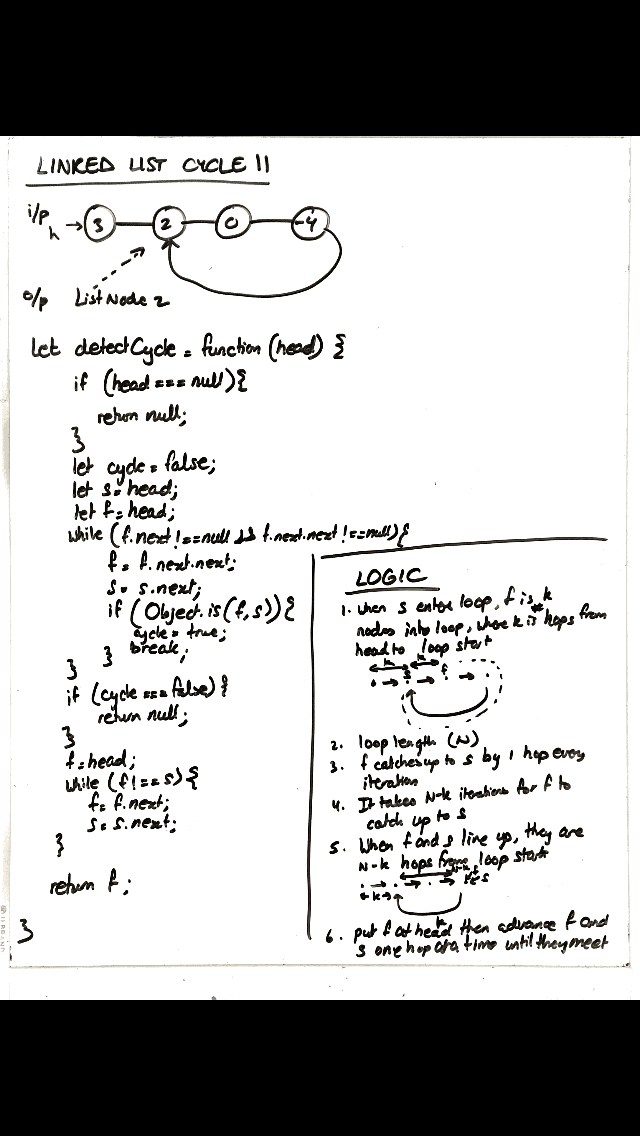 LINKED LIST CYCLE II
i/p h → 3 2 0 -4
o/p List Node 2
let detectCycle = function (head) {
if (head === null){
return null;
}
let cycle = false;
let s = head;
let f = head;
while (f.next !== null && f.next.next !== null){
f = f.next.next;
s = s.next;
if (Object.is(f,s)){
cycle = true;
break;
}
}
if (cycle === false){
return null;
}
f = head;
while (f !== s){
f = f.next;
s = s.next;
}
return f;
}
LOGIC
1. when s enter loop, f is k
nodes into loop, where k is hops from
head to loop start
k k
s f
2. loop length (N)
3. f catches up to s by 1 hop every
iteration
4. It takes N-k iterations for f to
catch up to s
5. When f and s line up, they are
N-k hops from loop start
N-k
k
k
6. put f at head then advance f and
s one hop at a time until they meet